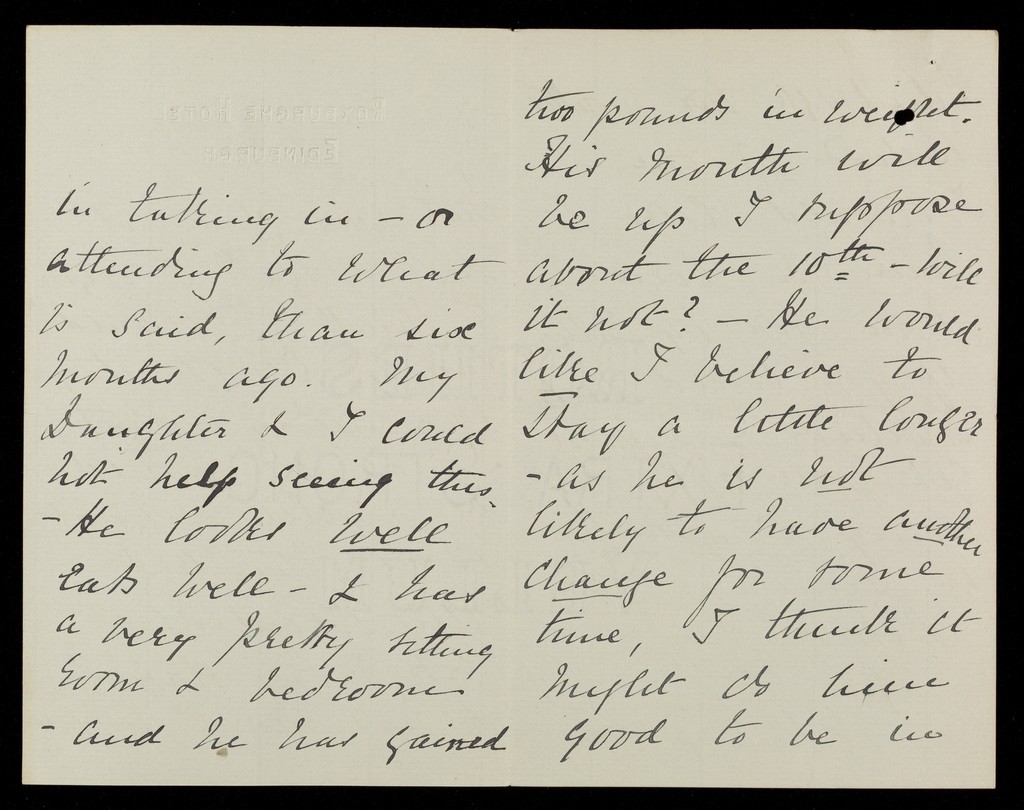 ROXBURGHE HOTEL
EDINBURGH
in taking in - or
attending to what
is said, than six
months ago. My
Daughter & I could
not help seeing this.
- He looks well
Eats well - & has
a very pretty sitting
room & bedroom
- and he has gained
two pounds in weight.
His month will
be up I suppose
about the 10th - will
it not? - He would
like I believe to
stay a little longer
- as he is not
likely to have another
change for some
time, I think it
might do him
good to be in